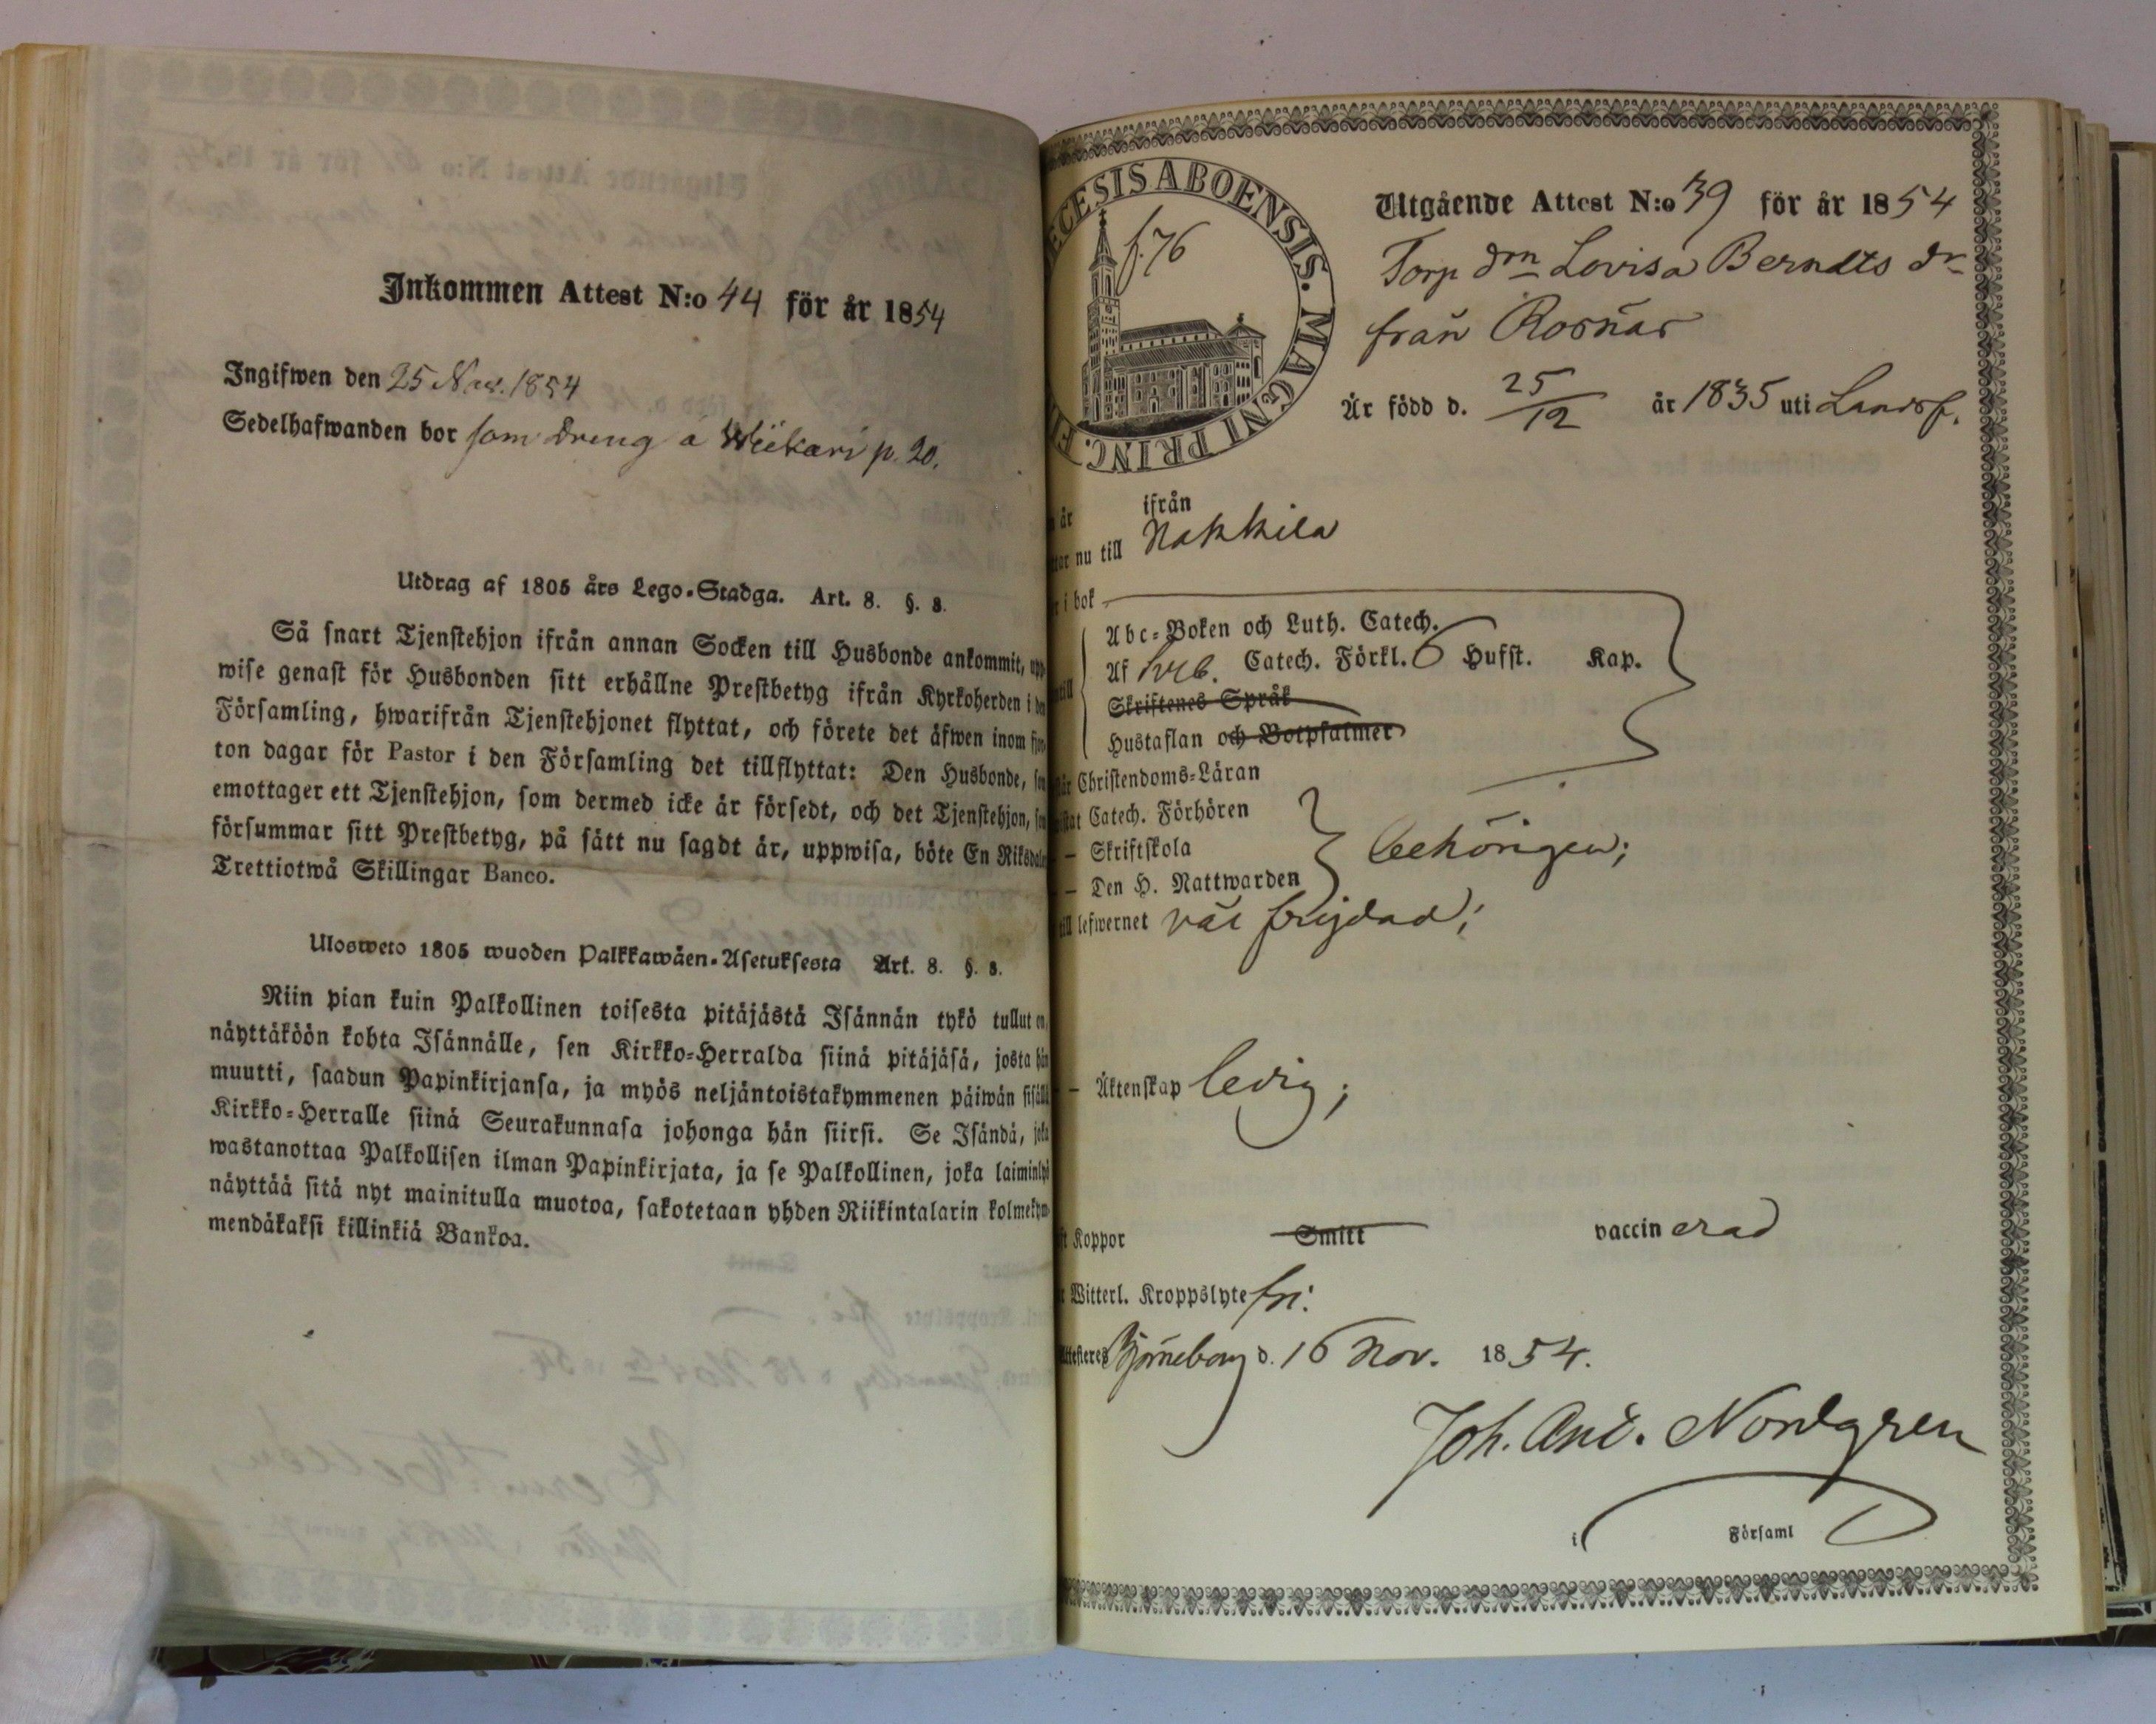 Inkommen Attest N:o 44 för år 1854
Ingifwen den 25 Nov. 1854
Sedelhafwanden bor som dreng å Wiikari p. 20.
Utdrag af 1805 års Lego-Stadga. Art. 8. §. 8.
Så snart Tjenstehjon ifrån annan Socken till Husbonde ankommit, upp-
wise genast för Husbonden sitt erhållne Prestbetyg ifrån Kyrkoherden i den
Församling, hwarifrån Tjenstehjonet flyttat, och förete det äfwen inom fjor-
ton dagar för Pastor i den Församling det tillflyttat: Den Husbonde, som
emottager ett Tjenstehjon, som dermed icke är försedt, och det Tjenstehjon, som
försummar sitt Prestbetyg, på sätt nu sagdt är, uppwisa, böte En Riksdaler
Trettiotwå Skillingar Banco.
Ulosweto 1805 wuoden Palkkawäen-Asetuksesta Art. 8. §. 8.
Niin pian kuin Palkollinen toisesta pitäjästä Isännän tykö tullut on,
näyttäköön kohta Isännälle, sen Kirkko-Herralda siinä pitäjäsä, josta hän
muutti, saadun Papinkirjansa, ja myös neljäntoistakymmenen päiwän sisällä
Kirkko-Herralle siinä Seurakunnasa johonga hän siirsi. Se Isändä, joka
wastanottaa Palkollisen ilman Papinkirjata, ja se Palkollinen, joka laiminlyö
näyttää sitä nyt mainitulla muotoa, sakotetaan yhden Riikintalarin kolmekym-
mendäkaksi killinkiä Bankoa.
ECESIS ABOENSIS. MAGNI PRINC. F
f. 76
Utgående Attest N:o 39 för år 1854
Torp drn Lovisa Berndts dr
från Rosnäs
Är född d. 25/12 år 1835 uti Landsf.
år ifrån
nu till Nakkila
i bok
Abc-Boken och Luth. Catech.
Af Sveb. Catech. Förkl. 6 Hufst. Kap.
Skriftenes Språk
Hustaflan och Botpsalmer
Christendoms-Läran
Catech. Förhören
— Skriftskola behörigen;
— Den H. Nattwarden
till lefwernet väl frejdad;
— Äktenskap ledig;
Koppor Smitt vaccinerad
Witterl. Kroppslyte fri.
Attesteres Björneborg d. 16 Nov. 1854.
Joh. And. Nordgren
i Församl